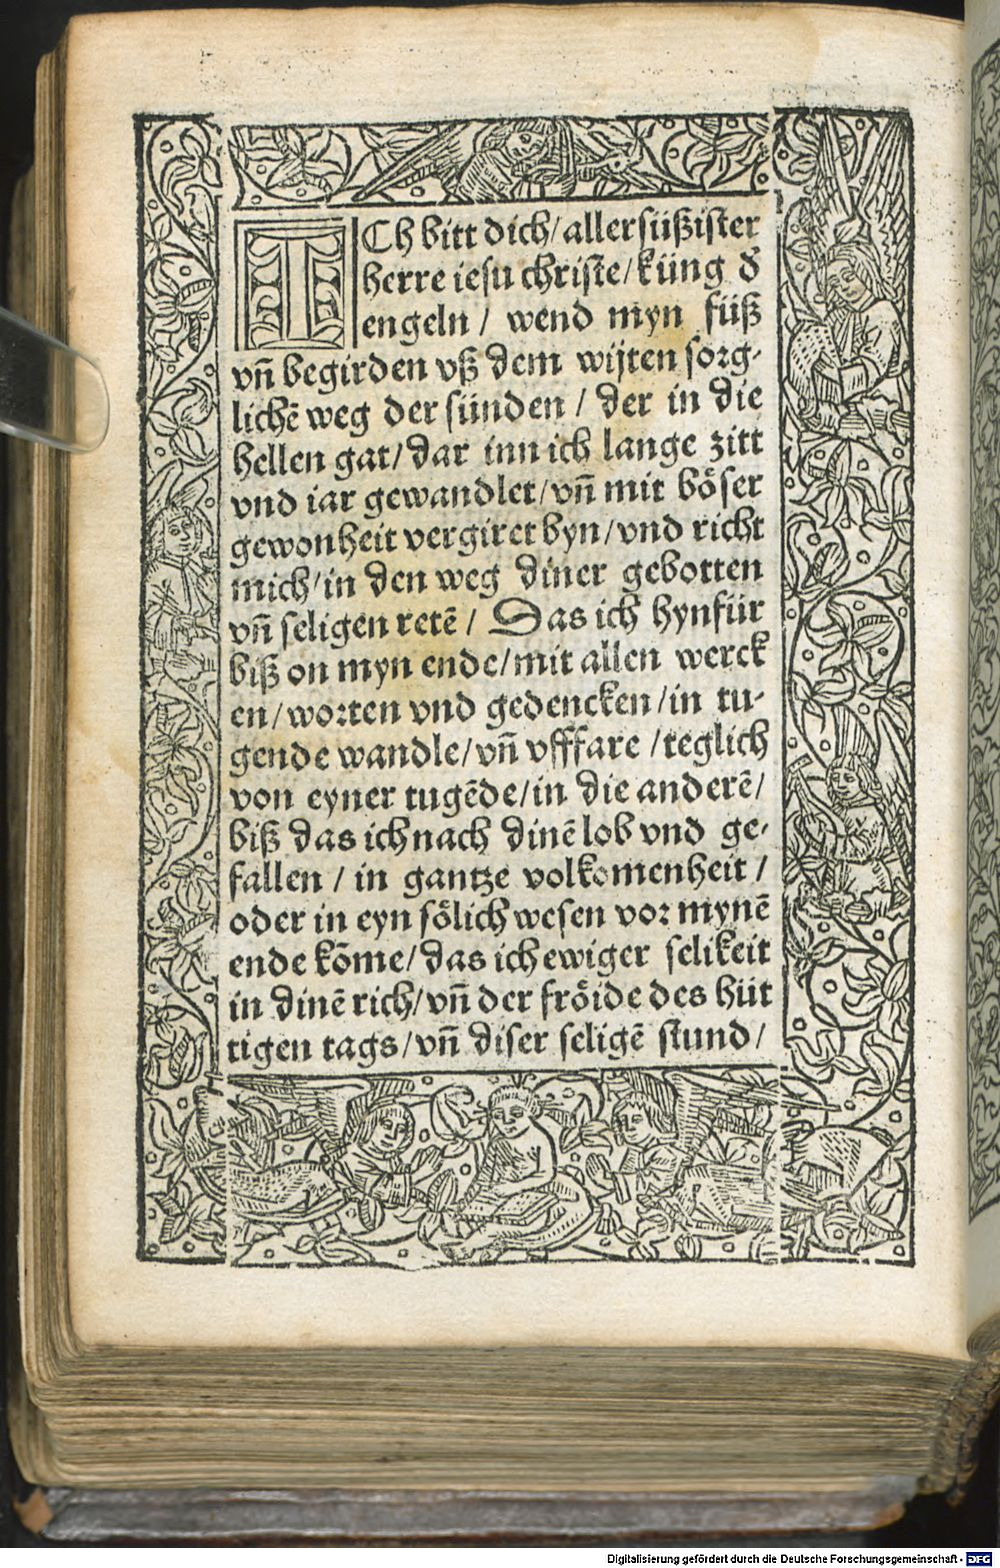 ICh bitt dich/ allersüßister
herre iesu christe/ küng d̾
engeln / wend myn füß
vn̄ begirden vß dem wijten sorg-
lichē weg der sünden / der in die
hellen gat/ dar inn ich lange zitt
vnd iar gewandlet/ vn̄ mit bo᷑ser
gewonheit vergiret byn/ vnd richt
mich/ in den weg diner gebotten
vn̄ seligen retē / Das ich hynfür
biß on myn ende/ mit allen werck
en/ worten vnd gedencken/ in tu-
gende wandle/ vn̄ vfffare / teglich
von eyner tugēde/ in die anderē/
biß das ich nach dinē lob vnd ge-
fallen / in gantze volkomenheit /
oder in eyn sölich wesen vor mynē
ende kōme/ das ich ewiger selikeit
in dinē rich/ vn̄ der fröide des hüt
tigen tags/ vn̄ diser seligē stund/
Digitalisierung gefördert durch die Deutsche Forschungsgemeinschaft - DFG